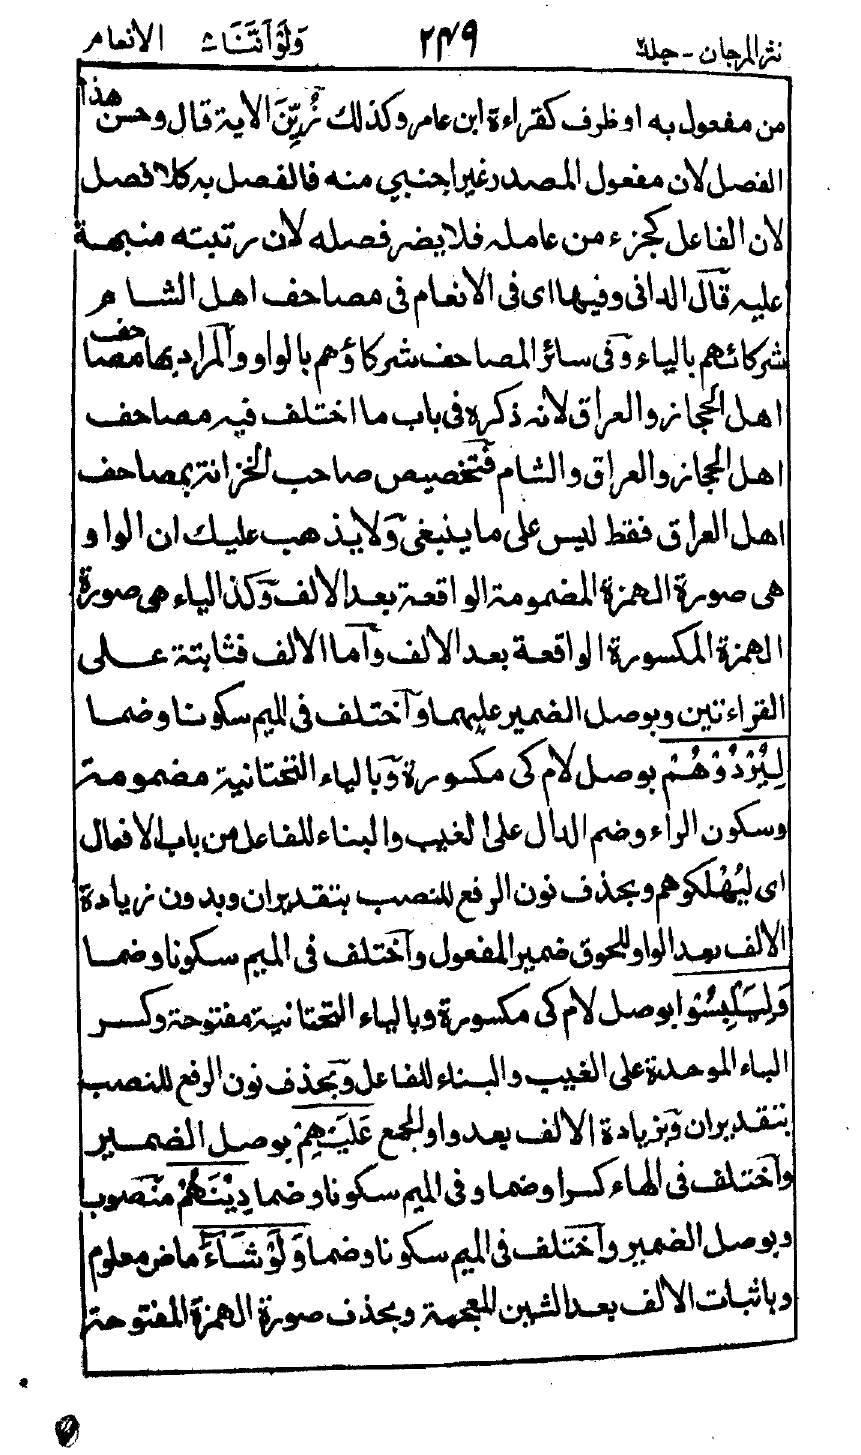 نثر المرجان - جلد ٢ ٢٤٩ وَلَوْ اَنَّنَا الانعام
من مفعول به او ظرف كقراءة ابن عامر وكذلك زُيِّنَ الاية قال وحسن هذا
الفصل لان مفعول المصدر غير اجنبي منه فالفصل به كلا فصل
لان الفاعل كجزء من عامله فلا يضر فصله لان رتبته منبهة
عليه قال الدانى وفيها اى فى الانعام فى مصاحف اهل الشام
شركائهم بالياء وفى سائر المصاحف شركاؤهم بالواو والمراد بها مصاحف
اهل الحجاز والعراق لانه ذكره فى باب ما اختلف فيه مصاحف
اهل الحجاز والعراق والشام فتخصيص صاحب الخزانة بمصاحف
اهل العراق فقط ليس على ما ينبغى ولا يذهب عليك ان الواو
هى صورة الهمزة المضمومة الواقعة بعد الالف وكذا الياء هى صورة
الهمزة المكسورة الواقعة بعد الالف واما الالف فثابتة على
القراءتين وبوصل الضمير عليهما واختلف فى الميم سكونا وضما
لِيُرْدُوْهُمْ بوصل لام كى مكسورة وبالياء التحتانية مضمومة
وسكون الراء وضم الدال على الغيب والبناء للفاعل من باب الافعال
اى ليُهْلكوهم وبحذف نون الرفع للنصب بتقدير ان وبدون زيادة
الالف بعد الواو للحوق ضمير المفعول واختلف فى الميم سكونا وضما
وَلِيَلْبِسُوْا بوصل لام كى مكسورة وبالياء التحتانية مفتوحة وكسر
الباء الموحدة على الغيب والبناء للفاعل وبحذف نون الرفع للنصب
بتقدير ان وبزيادة الالف بعد واو الجمع عَلَيْهِمْ بوصل الضمير
واختلف فى الهاء كسرا وضما وفى الميم سكونا وضما دِيْنَهُمْ منصوب
وبوصل الضمير واختلف فى الميم سكونا وضما وَلَوْ شَاءَ ماض معلوم
وباثبات الالف بعد الشين المعجمة وبحذف صورة الهمزة المفتوحة